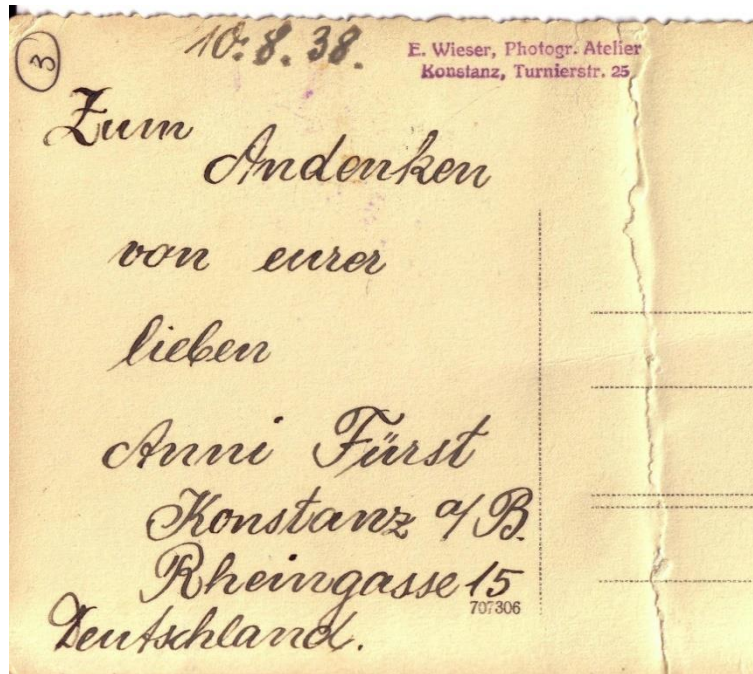 3
10. 8. 38.
E. Wieser, Photogr. Atelier
Konstanz, Turnierstr. 25
Zum
Andenken
von eurer
lieben
Anni Fürst
Konstanz a/B.
Rheingasse 15
707306
Deutschland.